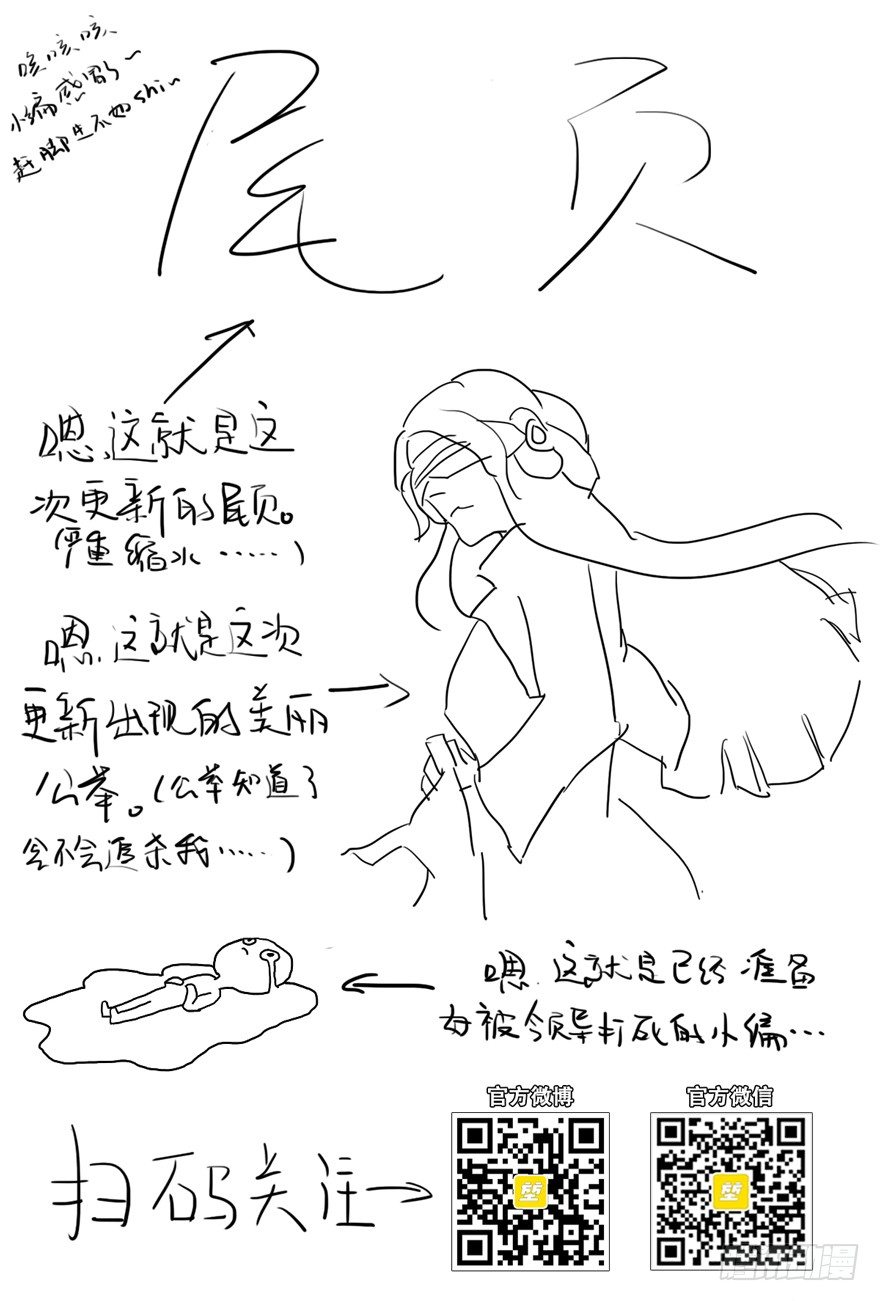 咳咳咳
小编感冒了~
赶脚生不如shi~
尾页
嗯,这就是这
次更新的尾页。
(严重缩水……)
嗯,这就是这次
更新出现的美丽
公举。(公举知道了
会不会追杀我……)
嗯,这就是已经准备
好被领导打死的小编…
官方微博
官方微信
扫码关注